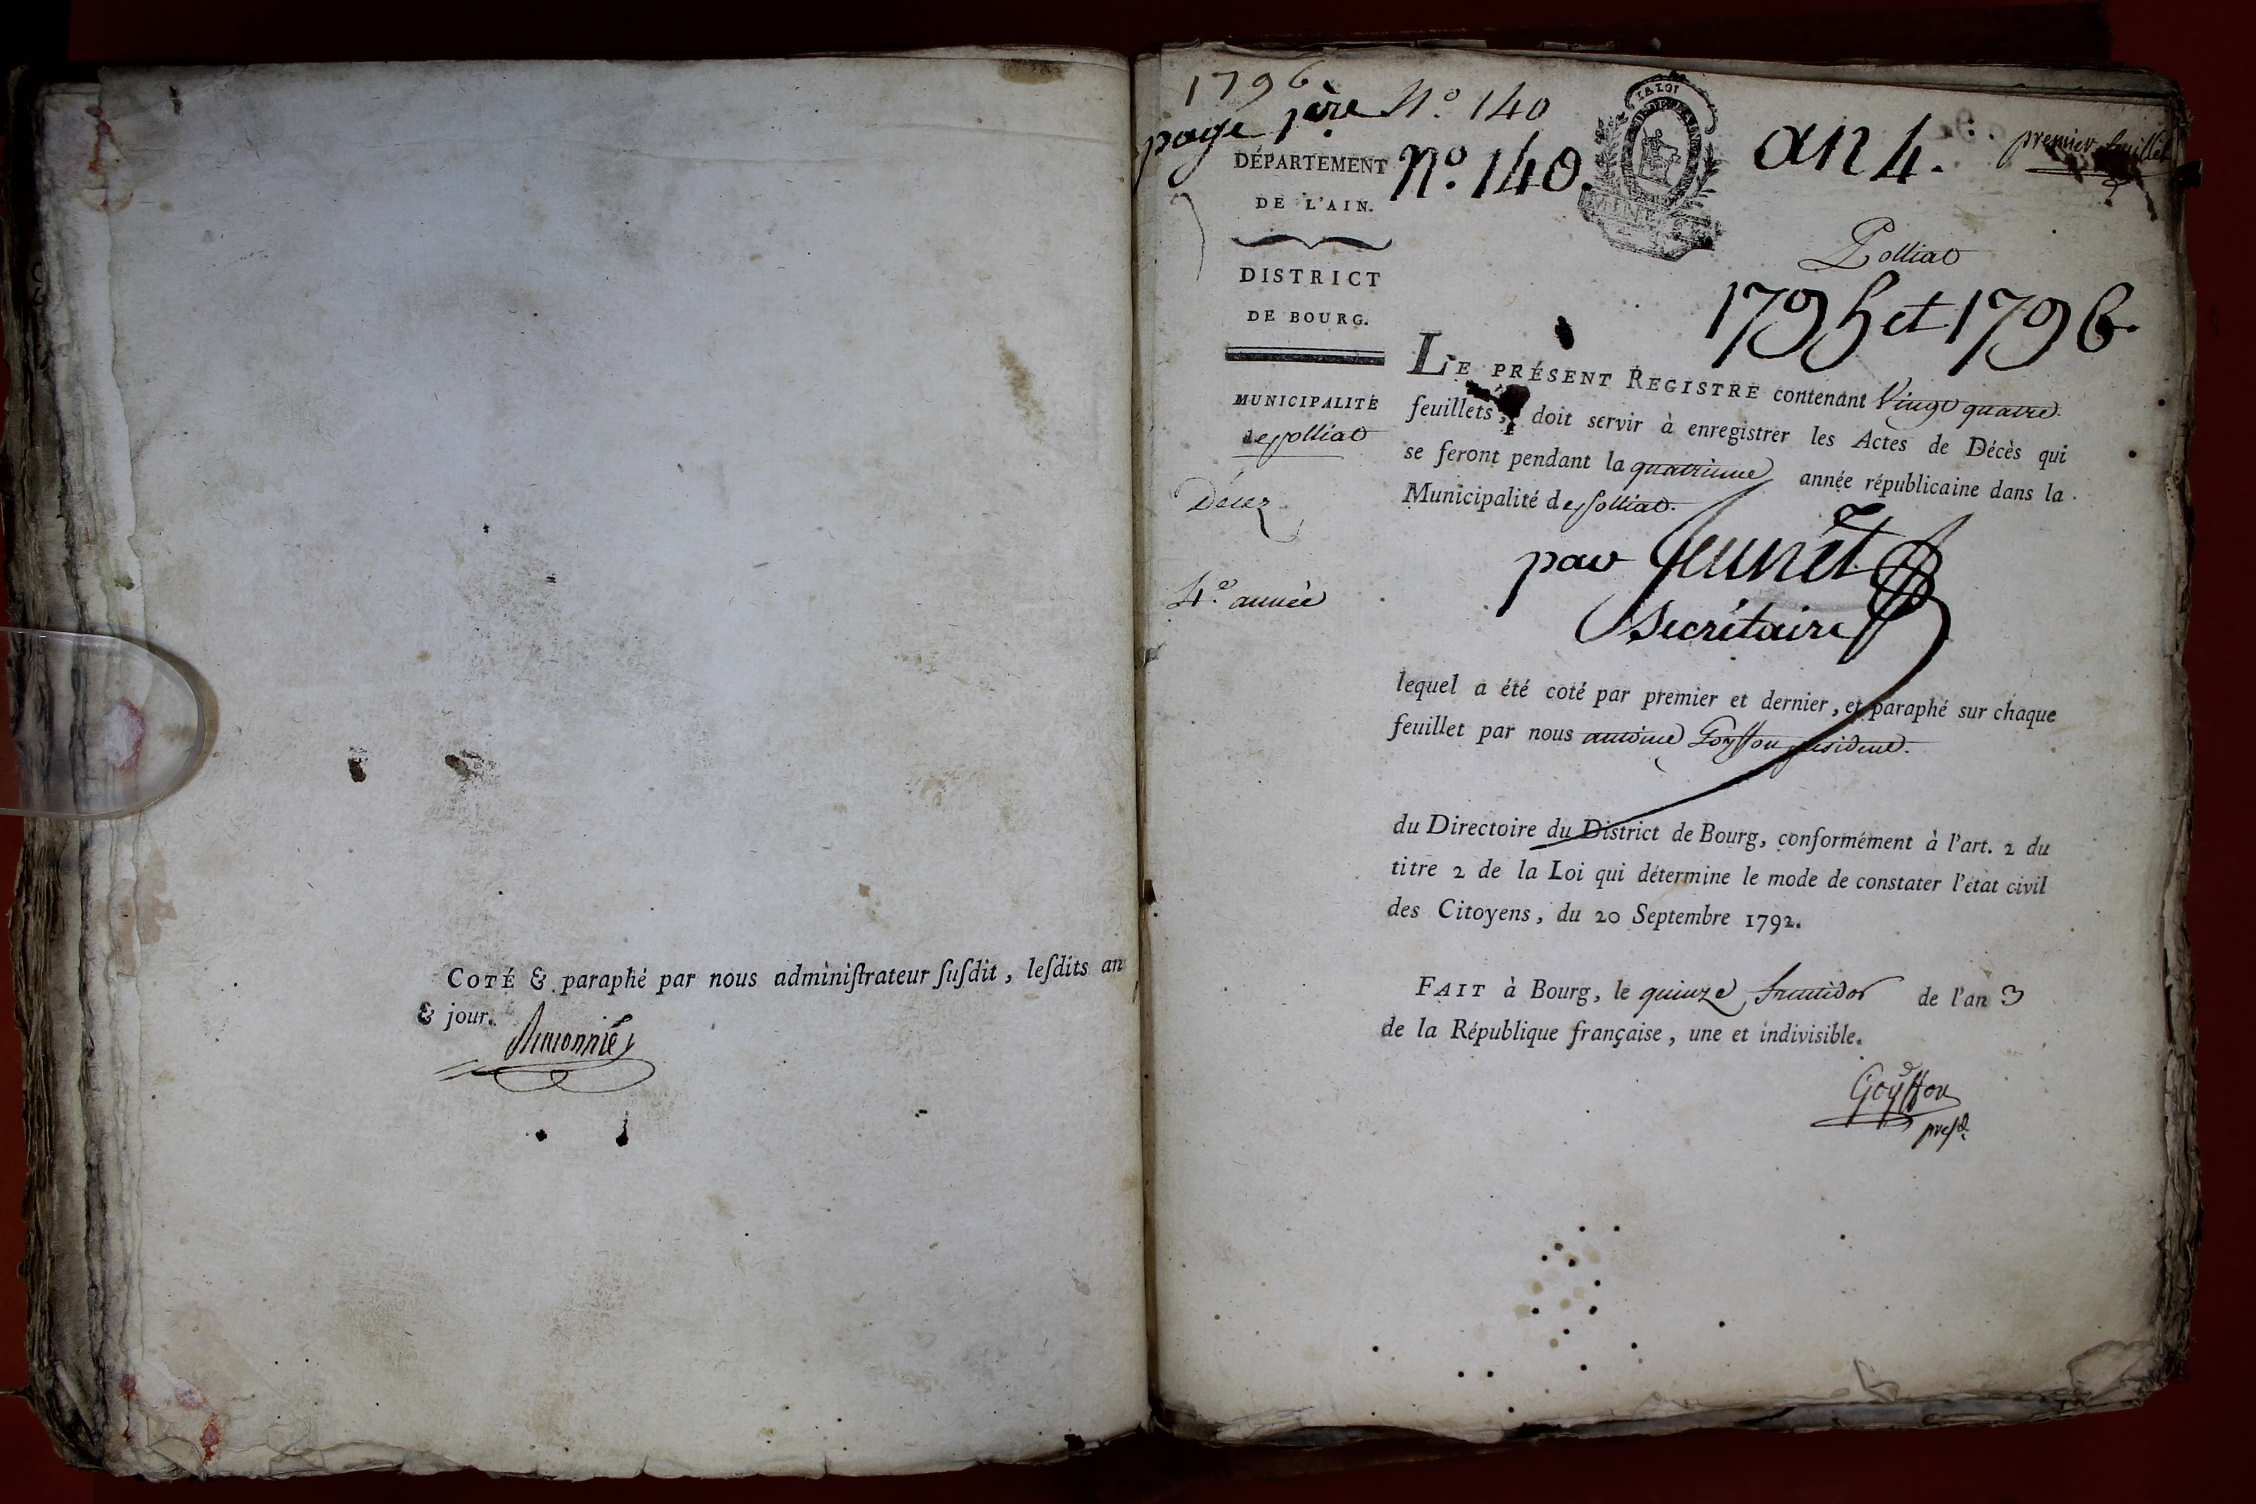 COTÉ & paraphé par nous adminiſtrateur ſuſdit, leſdits an
& jour.
1796.
page 1ère N.º 140
DÉPARTEMENT
DE L'AIN.
DISTRICT
DE BOURG.
MUNICIPALITÉ
de polliat
Décez
4.e année
Nº. 140.
LA LOI
an 4.
premier feuillet
Polliat
1795 et 1796.
LE PRÉSENT REGISTRE contenant Vingt quatre
feuillets, doit servir à enregistrer les Actes de Décès qui
se feront pendant la quatrieme année républicaine dans la
Municipalité de polliat.
par Jeunet
Secrétaire
lequel a été coté par premier et dernier, et paraphé sur chaque
feuillet par nous antoine Goyffon président.
du Directoire du District de Bourg, conformément à l'art. 2 du
titre 2 de la Loi qui détermine le mode de constater l'état civil
des Citoyens, du 20 Septembre 1792.
FAIT à Bourg, le quinze fructidor de l'an 3
de la République française, une et indivisible.
Goyffon
presd.